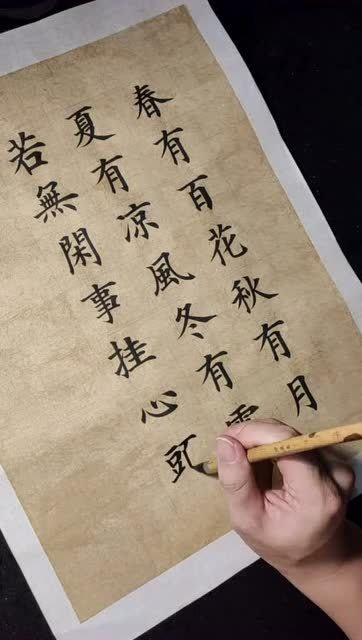 春有百花秋有月
夏有凉風冬有雪
若無閑事挂心頭